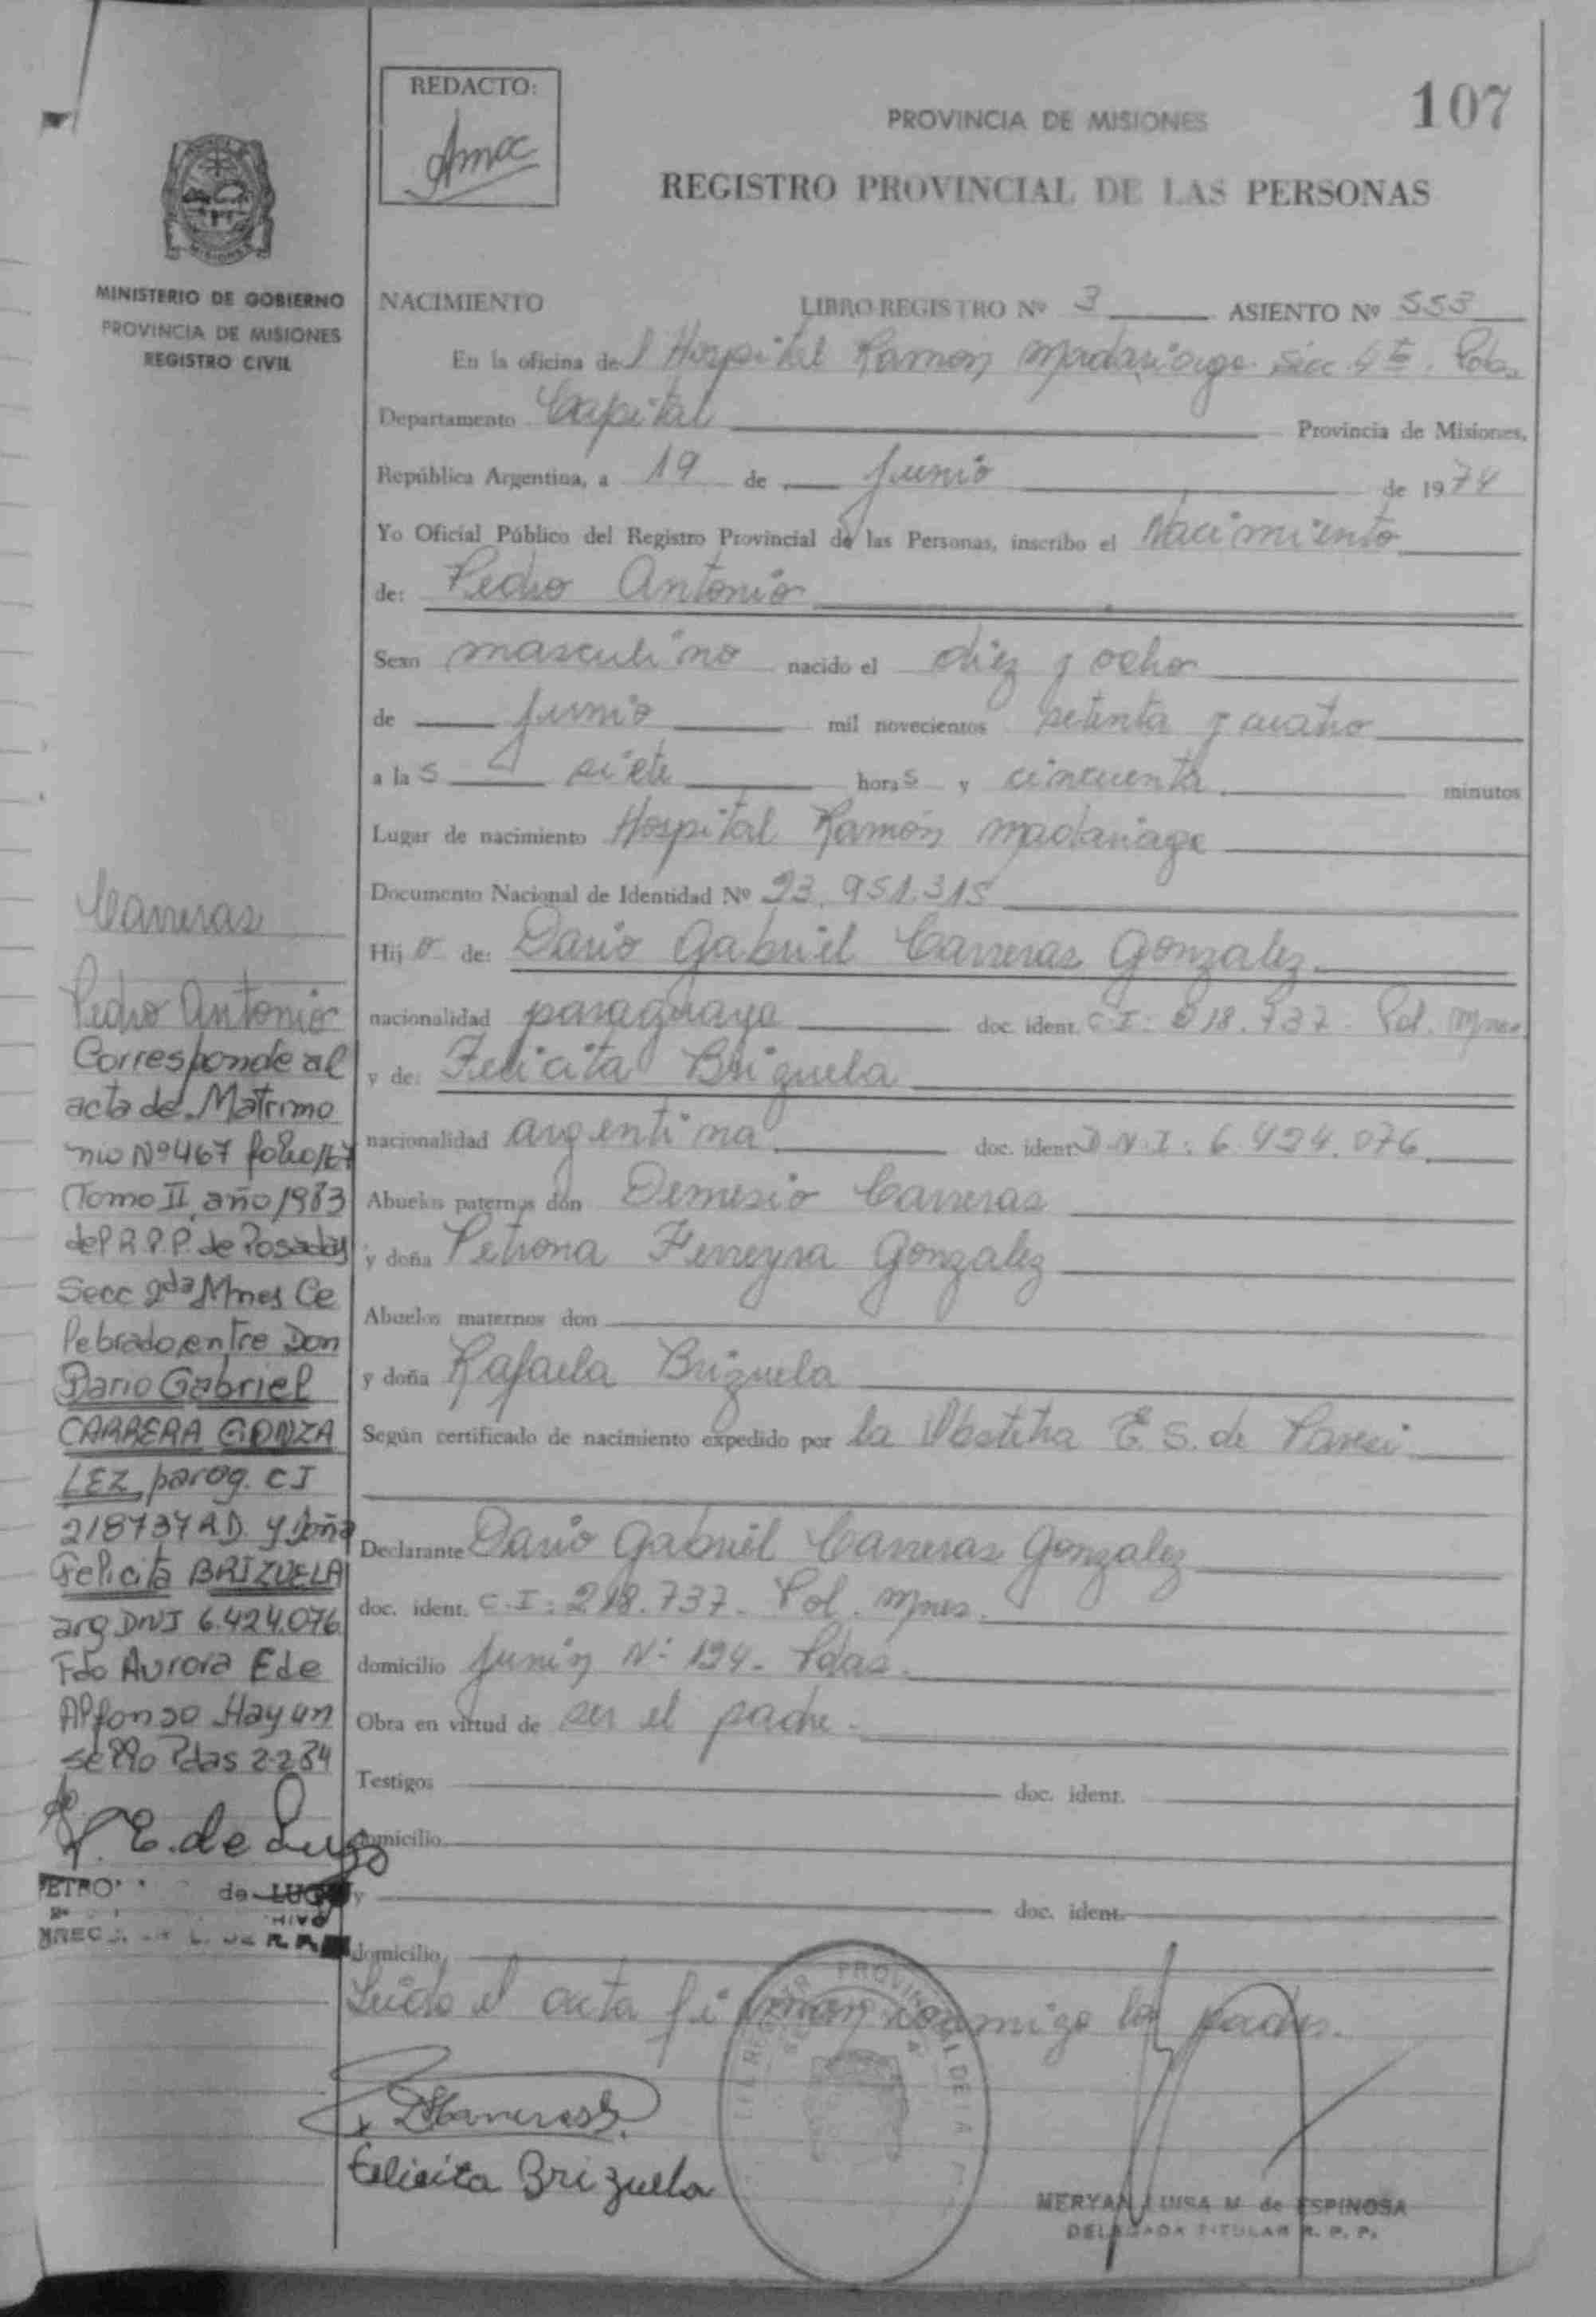 REDACTO:
107
PROVINCIA DE MISIONES
REGISTRO PROVINCIAL DE LAS PERSONAS
MISIONES
MINISTERIO DE GOBIERNO
PROVINCIA DE MISIONES
REGISTRO CIVIL
NACIMIENTO LIBRO REGISTRO Nº 3 ASIENTO Nº 553
En la oficina del Hospital Ramón Madariaga Secc. Pdas
Departamento Capital Provincia de Misiones,
República Argentina, a 19 de Junio de 1974
Yo Oficial Público del Registro Provincial de las Personas, inscribo el Nacimiento
de: Pedro Antonio
Sexo masculino nacido el diez y ocho
de Junio mil novecientos setenta y cuatro
a las siete horas y cincuenta minutos
Lugar de nacimiento Hospital Ramón Madariaga
Documento Nacional de Identidad Nº 23.951.315
Hijo de: Dario Gabriel Carreras Gonzalez
nacionalidad paraguaya doc. ident. C.I: 218.737 - Pol. Mnes
y de: Felicita Brizuela
nacionalidad argentina doc. ident D.N.I: 6.424.076
Abuelos paternos don Demesio Carreras
y doña Petrona Ferreyra Gonzalez
Abuelos maternos don
y doña Rafaela Brizuela
Según certificado de nacimiento expedido por la Obstetra E. S. de Paresi
Declarante Dario Gabriel Carreras Gonzalez
doc. ident. C.I: 218.737 - Pol. Mnes.
domicilio Junín Nº 194 - Pdas.
Obra en virtud de ser el padre.
Testigos doc. ident.
domicilio
y doc. ident.
domicilio
Leido el acta firman conmigo los padres.
Felicita Brizuela
MERYAN LUISA M de ESPINOSA
DELEGADA TITULAR R. P. P.
Carreras
Pedro Antonio
Corresponde al
acta de Matrimo
nio Nº 467 folio 167
Tomo II, año 1983
del R.P.P. de Posadas
Secc 2da Mnes Ce
lebrado entre Don
Dario Gabriel
CARRERA GONZA
LEZ, parag. CI
218737 RD. y Doña
Felicita BRIZUELA
arg DNI 6.424.076
Fdo Aurora E de
Alfonso Hay un
sello Pdas 2-2-84
E. de Lugo
de LUGO